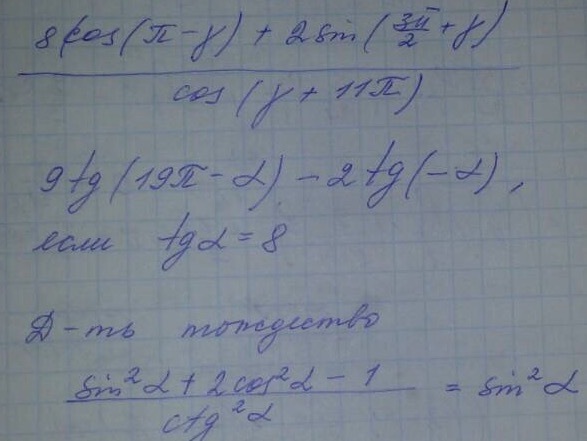 8cos(π-γ) + 2sin(3π/2 + γ)
cos(γ + 11π)
9tg(19π - α) - 2tg(-α),
если tgα = 8
Д-ть тождество
sin²α + 2cos²α - 1 = sin²α
ctg²α